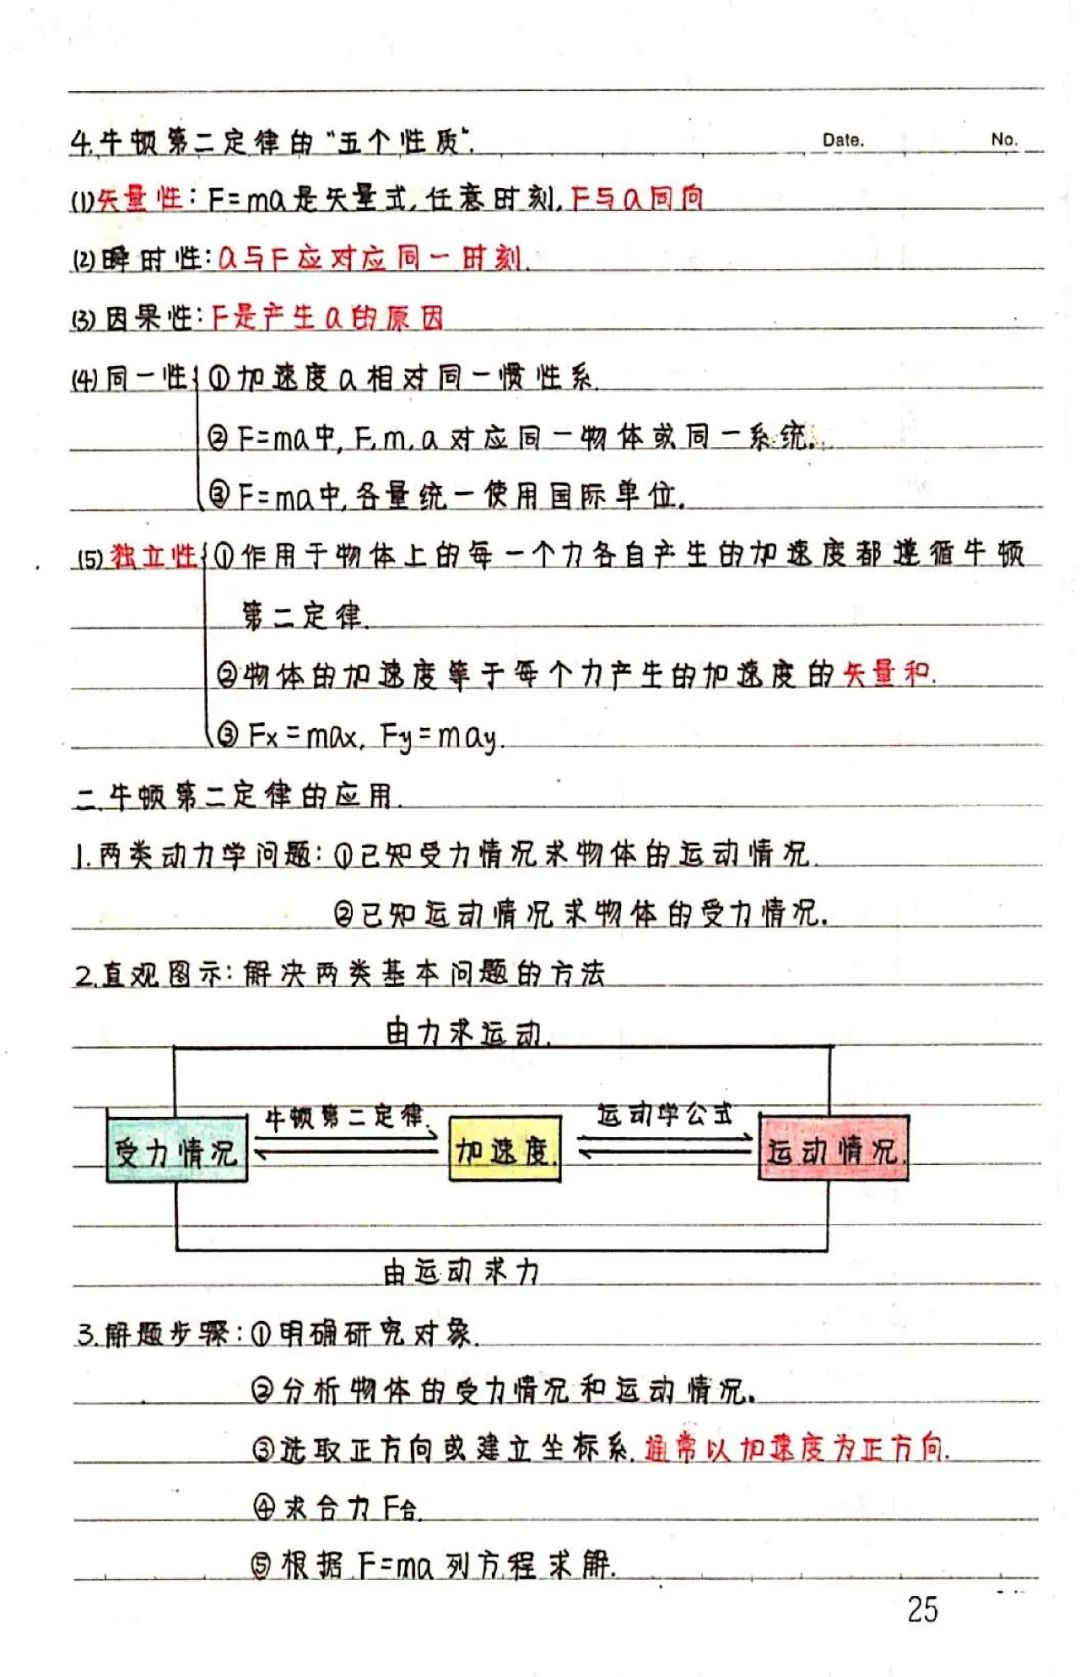 4.牛顿第二定律的“五个性质”.
Date. No.
(1)矢量性：F=ma是矢量式,任意时刻,F与a同向
(2)瞬时性：a与F应对应同一时刻.
(3)因果性：F是产生a的原因
(4)同一性{①加速度a相对同一惯性系.
②F=ma中,F,m,a对应同一物体或同一系统.
③F=ma中,各量统一使用国际单位.
(5)独立性{①作用于物体上的每一个力各自产生的加速度都遵循牛顿
第二定律.
②物体的加速度等于每个力产生的加速度的矢量和.
③Fx=max, Fy=may.
二.牛顿第二定律的应用.
1.两类动力学问题：①已知受力情况求物体的运动情况.
②已知运动情况求物体的受力情况.
2.直观图示：解决两类基本问题的方法
由力求运动.
牛顿第二定律. 运动学公式
受力情况 加速度. 运动情况.
由运动求力
3.解题步骤：①明确研究对象.
②分析物体的受力情况和运动情况.
③选取正方向或建立坐标系.通常以加速度为正方向.
④求合力F合.
⑤根据F=ma列方程求解.
25